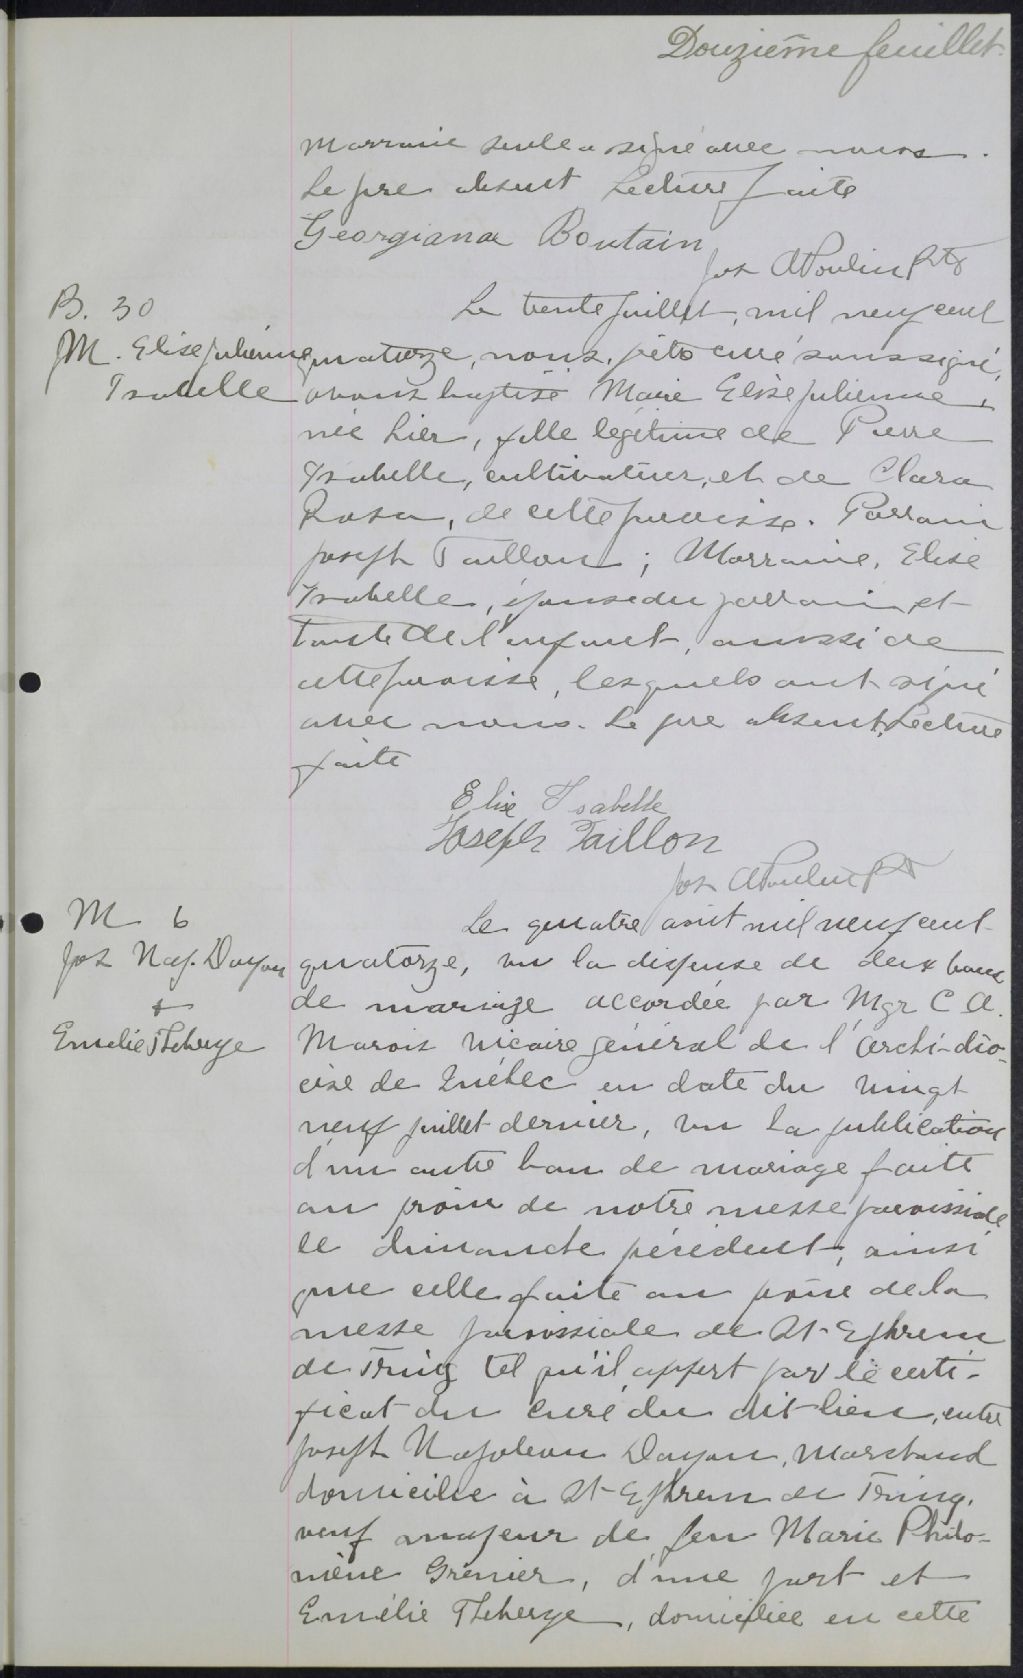 Douzième feuillet
Marraine seule a signé avec nous.
Le père absent Lecture faite
Georgiana Boutain
Jos A Poulin Ptr
B. 30
M. Elise Julienne
Isabelle
Le trente juillet, mil neuf cent
quatorze, nous, ptre curé soussigné,
avons baptisé Marie Elise Julienne,
née hier, fille légitime de Pierre
Isabelle, cultivateur, et de Clara
de cette paroisse. Parrain
Joseph Taillon; Marraine, Elise
Isabelle, épouse du parrain, et
tante de l'enfant, aussi de
cette paroisse, lesquels ont signé
avec nous. Le père absent, Lecture
faite
Elise Isabelle
Joseph Taillon
Jos A Poulin Ptr
M 6
Jos Nap. Doyon
+
Emelie Theberge
Le quatre août mil neuf cent
quatorze, vu la dispense de deux bans
de mariage accordée par Mgr C A.
Marois Vicaire général de l'archi-dio-
cèse de Québec en date du vingt
neuf juillet dernier, vu la publication
d'un autre ban de mariage faite
au prône de notre messe paroissiale
le dimanche précédent, ainsi
que celle faite au prône de la
messe paroissiale de St-Ephrem
de Tring tel qu'il appert par le certi-
ficat du curé du dit lieu, entre
Joseph Napoleon Doyon, Marchand
domicilié à St-Ephrem de Tring,
veuf majeur de feu Marie Philo-
mène Grenier, d'une part et
Emélie Theberge, domiciliée en cette